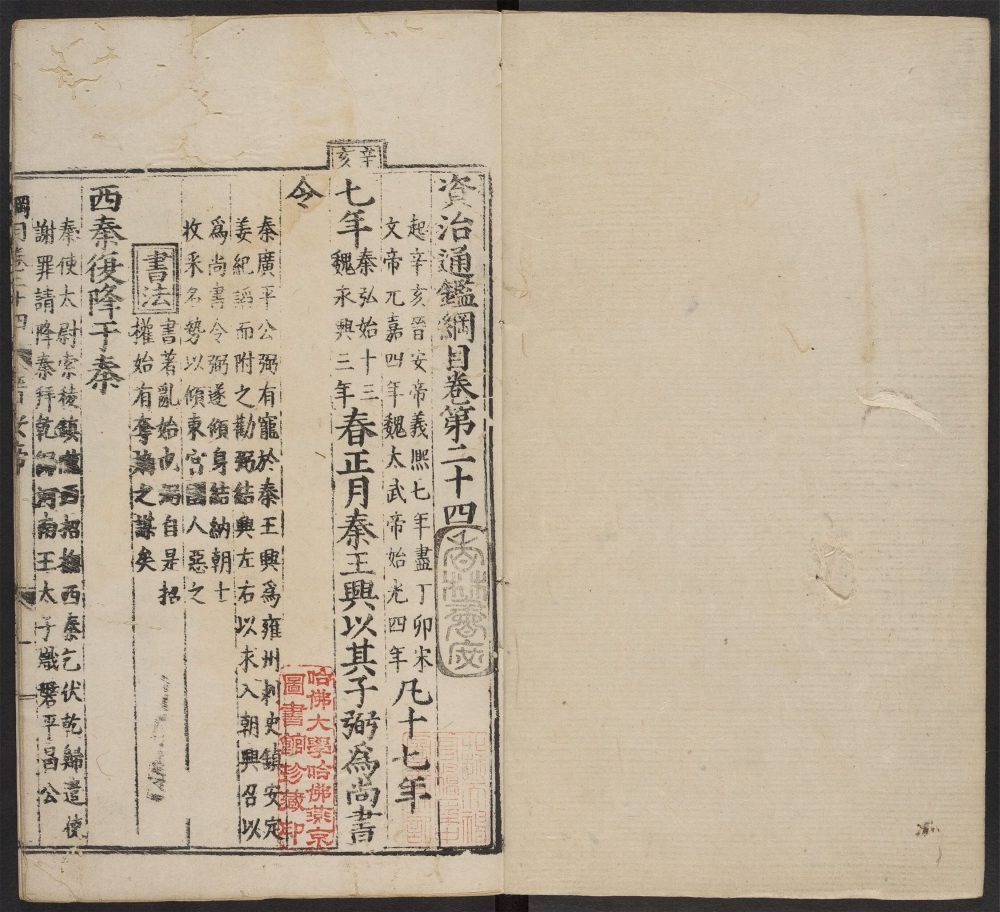 辛亥
資治通鑑綱目卷第二十四
起辛亥晉安帝義熙七年盡丁卯宋
文帝元嘉四年魏太武帝始光四年
凡十七年
七年
秦弘始十三
魏永興三年
春正月秦王興以其子弼為尚書
令
秦廣平公弼有寵於秦王興為雍州刺史鎮安定
姜紀諂而附之勸弼結興左右以求入朝興召以
為尚書令弼遂傾身結納朝士
收采名勢以傾東宮國人惡之
書法
書著亂始也弼自是招
權始有奪嫡之謀矣
西秦復降于秦
秦使太尉索稜鎮隴西招撫西秦乞伏乾歸遣使
謝罪請降秦拜乾歸河南王太子熾磐平昌公
綱目卷二十四
晉安帝
哈佛大學哈佛燕京
圖書館珍藏印